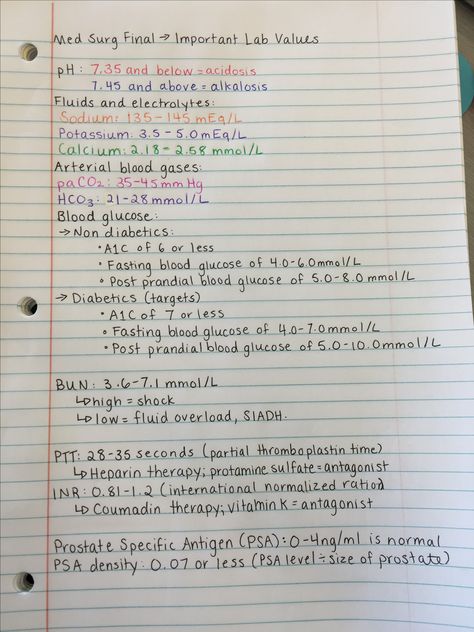 Med Surg Final → Important Lab Values
pH: 7.35 and below = acidosis
7.45 and above = alkalosis
Fluids and electrolytes:
Sodium: 135-145 mEq/L
Potassium: 3.5-5.0 mEq/L
Calcium: 2.18-2.58 mmol/L
Arterial blood gases:
paCO2: 35-45 mm Hg
HCO3: 21-28 mmol/L
Blood glucose:
→ Non diabetics:
• A1C of 6 or less
• Fasting blood glucose of 4.0-6.0 mmol/L
• Post prandial blood glucose of 5.0-8.0 mmol/L
→ Diabetics (targets)
• A1C of 7 or less
• Fasting blood glucose of 4.0-7.0 mmol/L
• Post prandial blood glucose of 5.0-10.0 mmol/L
BUN: 3.6-7.1 mmol/L
↳ high = shock
↳ low = fluid overload, SIADH.
PTT: 28-35 seconds (partial thromboplastin time)
↳ Heparin therapy; protamine sulfate = antagonist
INR: 0.81-1.2 (international normalized ratio)
↳ Coumadin therapy; vitamin K = antagonist
Prostate Specific Antigen (PSA): 0-4ng/ml is normal
PSA density: 0.07 or less (PSA level ÷ size of prostate)